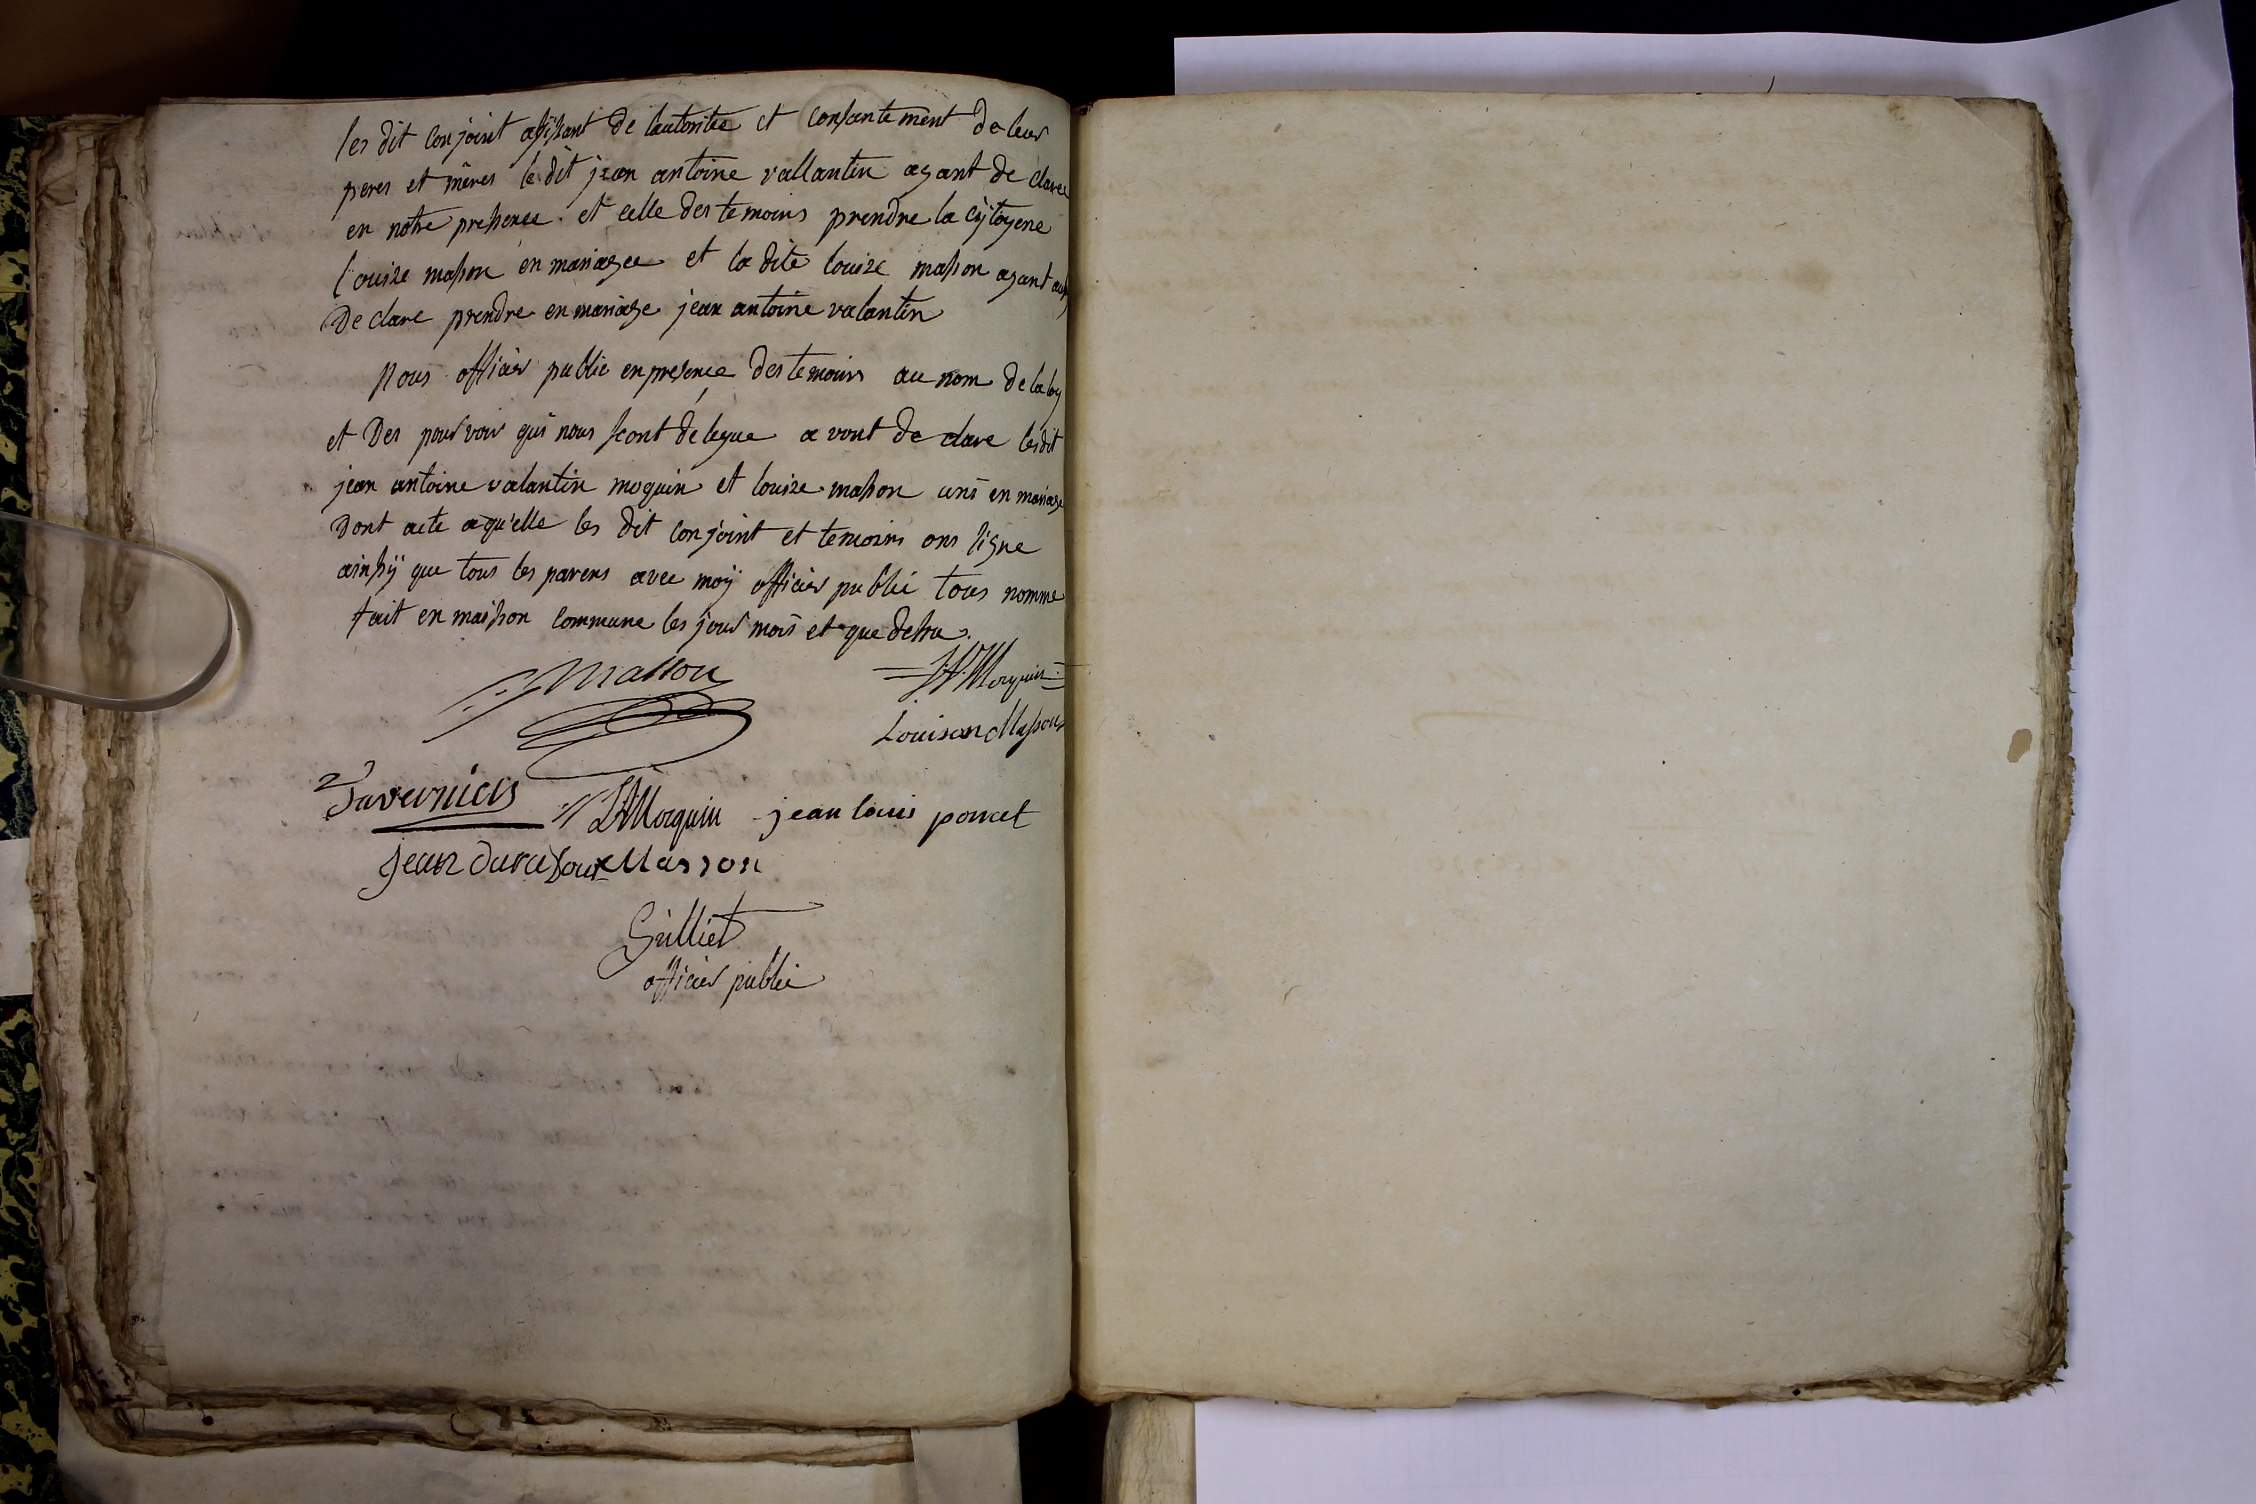 les dit conjoint agissant de lautoritee et consantement de leur
peres et mères le dit jean antoine vallantin ayant de claree
en notre presence et celle des temoins prendre la cÿtoyene
louize masson en mariagee et la dite louize masson ayant
De clare prendre en mariage jean antoine valantin
Nous officier public en presence des temoins au nom de la loy
et Des pouvoir qui nous sont delegue avont de clare les dit
jean antoine valantin moquin et louize masson uni en mariage
Dont acte a qu'elle les dit conjoint et temoins ons signe
ainsÿ que tous les parens avec moÿ officier public tous nomme
fait en maison commune les jour mois et que desu.
Masson
Moquin
Louison Masson
Tavernier
Moquin jean louis poncet
jean Masson
Gilliet
officier public